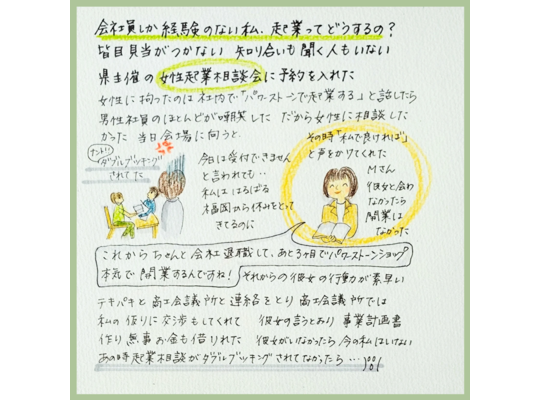 会社員しか経験のない私、起業ってどうするの?
皆目見当がつかない 知り合いも聞く人もいない
県主催の女性起業相談会に予約を入れた
女性に拘ったのは社内で「パワーストーンで起業する」と話したら
男性社員のほとんどが嘲笑した だから女性に相談した
かった 当日会場に向うと
ナント!!
ダブルブッキング
されてた
今日は受付できません
と言われても…
私ははるばる
福岡から休みをとって
きてるのに
その時「私で良ければ」
と声をかけてくれた
Mさん
彼女と会わ
なかったら
開業は
なかった
これからちゃんと会社退職して、あと3ヶ月でパワーストーンショップ
本気で開業するんですね!
それからの彼女の行動が素早い
テキパキと商工会議所と連絡をとり 商工会議所では
私の代りに交渉もしてくれて 彼女の言うとおり 事業計画書
作り無事お金も借りれた 彼女がいなかったら今の私はいない
あの時起業相談がダブルブッキングされてなかったら…